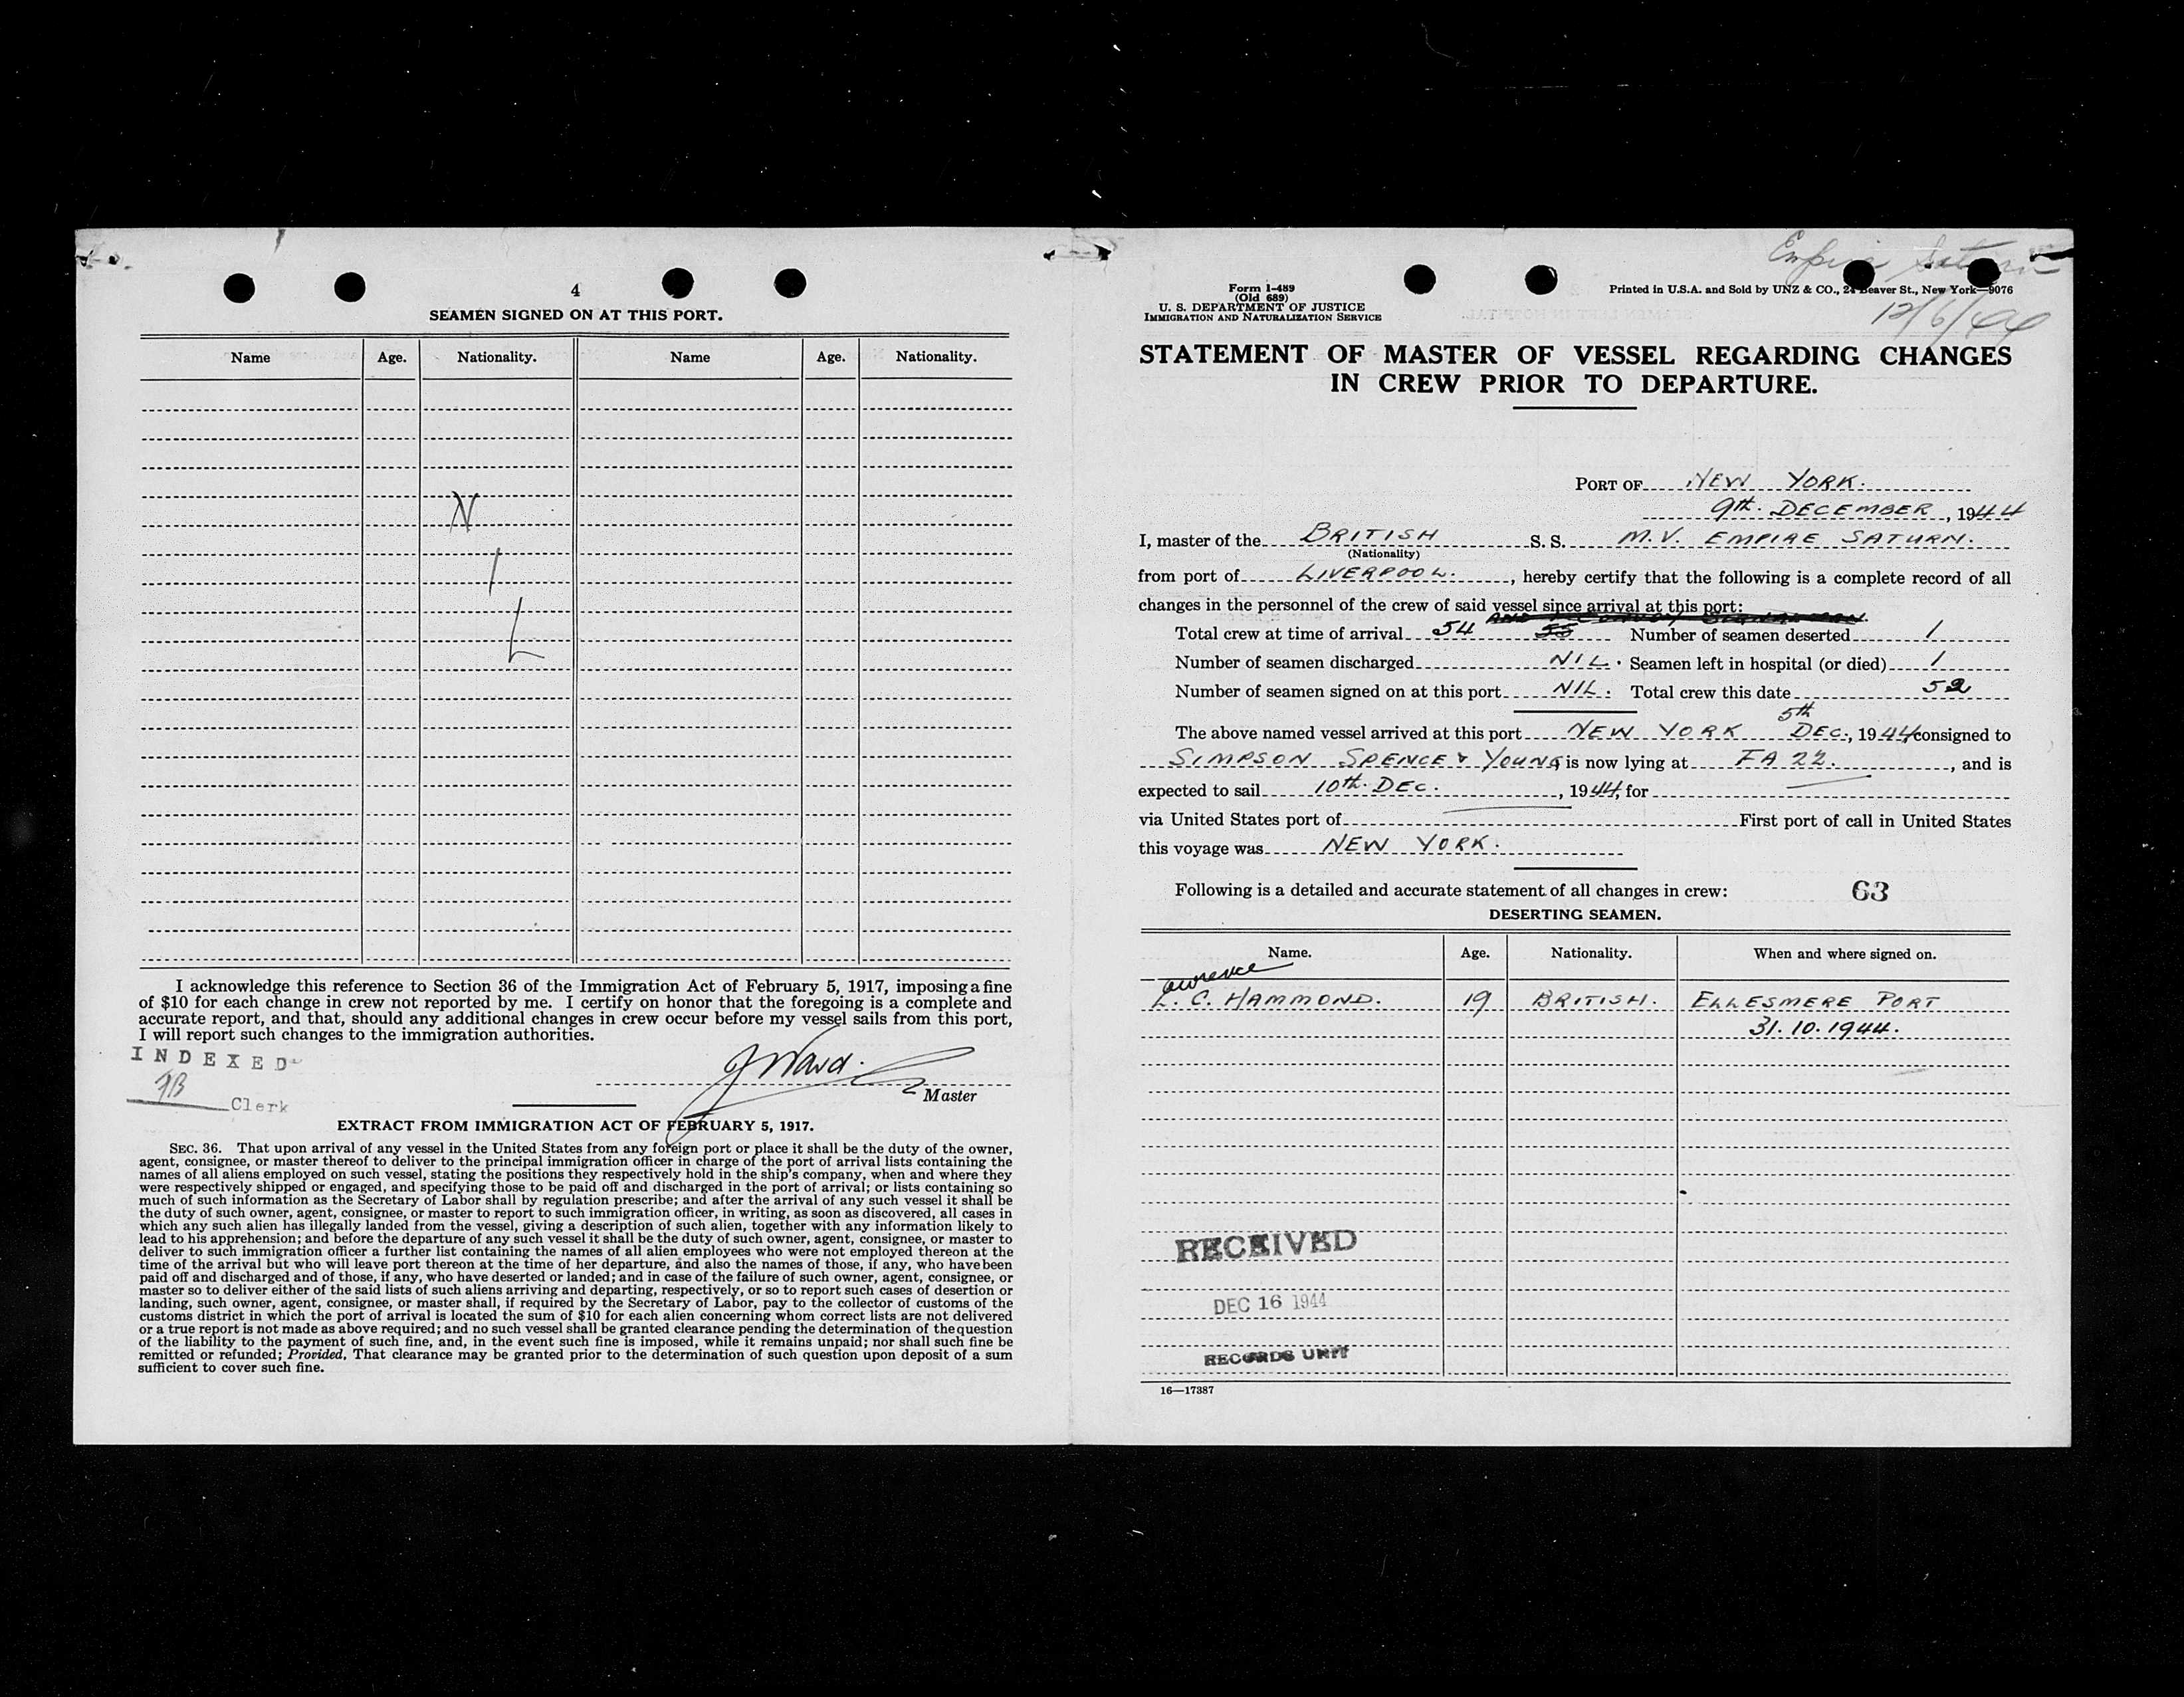 4
SEAMEN SIGNED ON AT THIS PORT.
Name Age. Nationality. Name Age. Nationality.
N
I
L
I acknowledge this reference to Section 36 of the Immigration Act of February 5, 1917, imposing a fine
of $10 for each change in crew not reported by me. I certify on honor that the foregoing is a complete and
accurate report, and that, should any additional changes in crew occur before my vessel sails from this port,
I will report such changes to the immigration authorities.
INDEXED
JWard.
Clerk
Master
EXTRACT FROM IMMIGRATION ACT OF FEBRUARY 5, 1917.
SEC. 36. That upon arrival of any vessel in the United States from any foreign port or place it shall be the duty of the owner,
agent, consignee, or master thereof to deliver to the principal immigration officer in charge of the port of arrival lists containing the
names of all aliens employed on such vessel, stating the positions they respectively hold in the ship's company, when and where they
were respectively shipped or engaged, and specifying those to be paid off and discharged in the port of arrival; or lists containing so
much of such information as the Secretary of Labor shall by regulation prescribe; and after the arrival of any such vessel it shall be
the duty of such owner, agent, consignee, or master to report to such immigration officer, in writing, as soon as discovered, all cases in
which any such alien has illegally landed from the vessel, giving a description of such alien, together with any information likely to
lead to his apprehension; and before the departure of any such vessel it shall be the duty of such owner, agent, consignee, or master to
deliver to such immigration officer a further list containing the names of all alien employees who were not employed thereon at the
time of the arrival but who will leave port thereon at the time of her departure, and also the names of those, if any, who have been
paid off and discharged and of those, if any, who have deserted or landed; and in case of the failure of such owner, agent, consignee, or
master so to deliver either of the said lists of such aliens arriving and departing, respectively, or so to report such cases of desertion or
landing, such owner, agent, consignee, or master shall, if required by the Secretary of Labor, pay to the collector of customs of the
customs district in which the port of arrival is located the sum of $10 for each alien concerning whom correct lists are not delivered
or a true report is not made as above required; and no such vessel shall be granted clearance pending the determination of the question
of the liability to the payment of such fine, and, in the event such fine is imposed, while it remains unpaid; nor shall such fine be
remitted or refunded; Provided, That clearance may be granted prior to the determination of such question upon deposit of a sum
sufficient to cover such fine.
Empire Saturn
12/6/44
Form I-489
(Old 689)
U. S. DEPARTMENT OF JUSTICE
IMMIGRATION AND NATURALIZATION SERVICE
Printed in U.S.A. and Sold by UNZ & CO., 24 Beaver St., New York—9076
STATEMENT OF MASTER OF VESSEL REGARDING CHANGES
IN CREW PRIOR TO DEPARTURE.
PORT OF NEW YORK.
9th. DECEMBER, 1944
I, master of the BRITISH S. S. M.V. EMPIRE SATURN.
(Nationality)
from port of LIVERPOOL., hereby certify that the following is a complete record of all
changes in the personnel of the crew of said vessel since arrival at this port:
Total crew at time of arrival 54 55 Number of seamen deserted 1
Number of seamen discharged NIL. Seamen left in hospital (or died) 1
Number of seamen signed on at this port NIL. Total crew this date 52
5th
The above named vessel arrived at this port NEW YORK DEC., 1944, consigned to
SIMPSON SPENCE & YOUNG, is now lying at FA 22., and is
expected to sail 10th. DEC., 1944, for
via United States port of First port of call in United States
this voyage was NEW YORK.
Following is a detailed and accurate statement of all changes in crew: 63
DESERTING SEAMEN.
Name. Age. Nationality. When and where signed on.
awrence
L. C. HAMMOND. 19 BRITISH. ELLESMERE PORT
31.10.1944.
RECEIVED
DEC 16 1944
RECORDS UNIT
16—17387